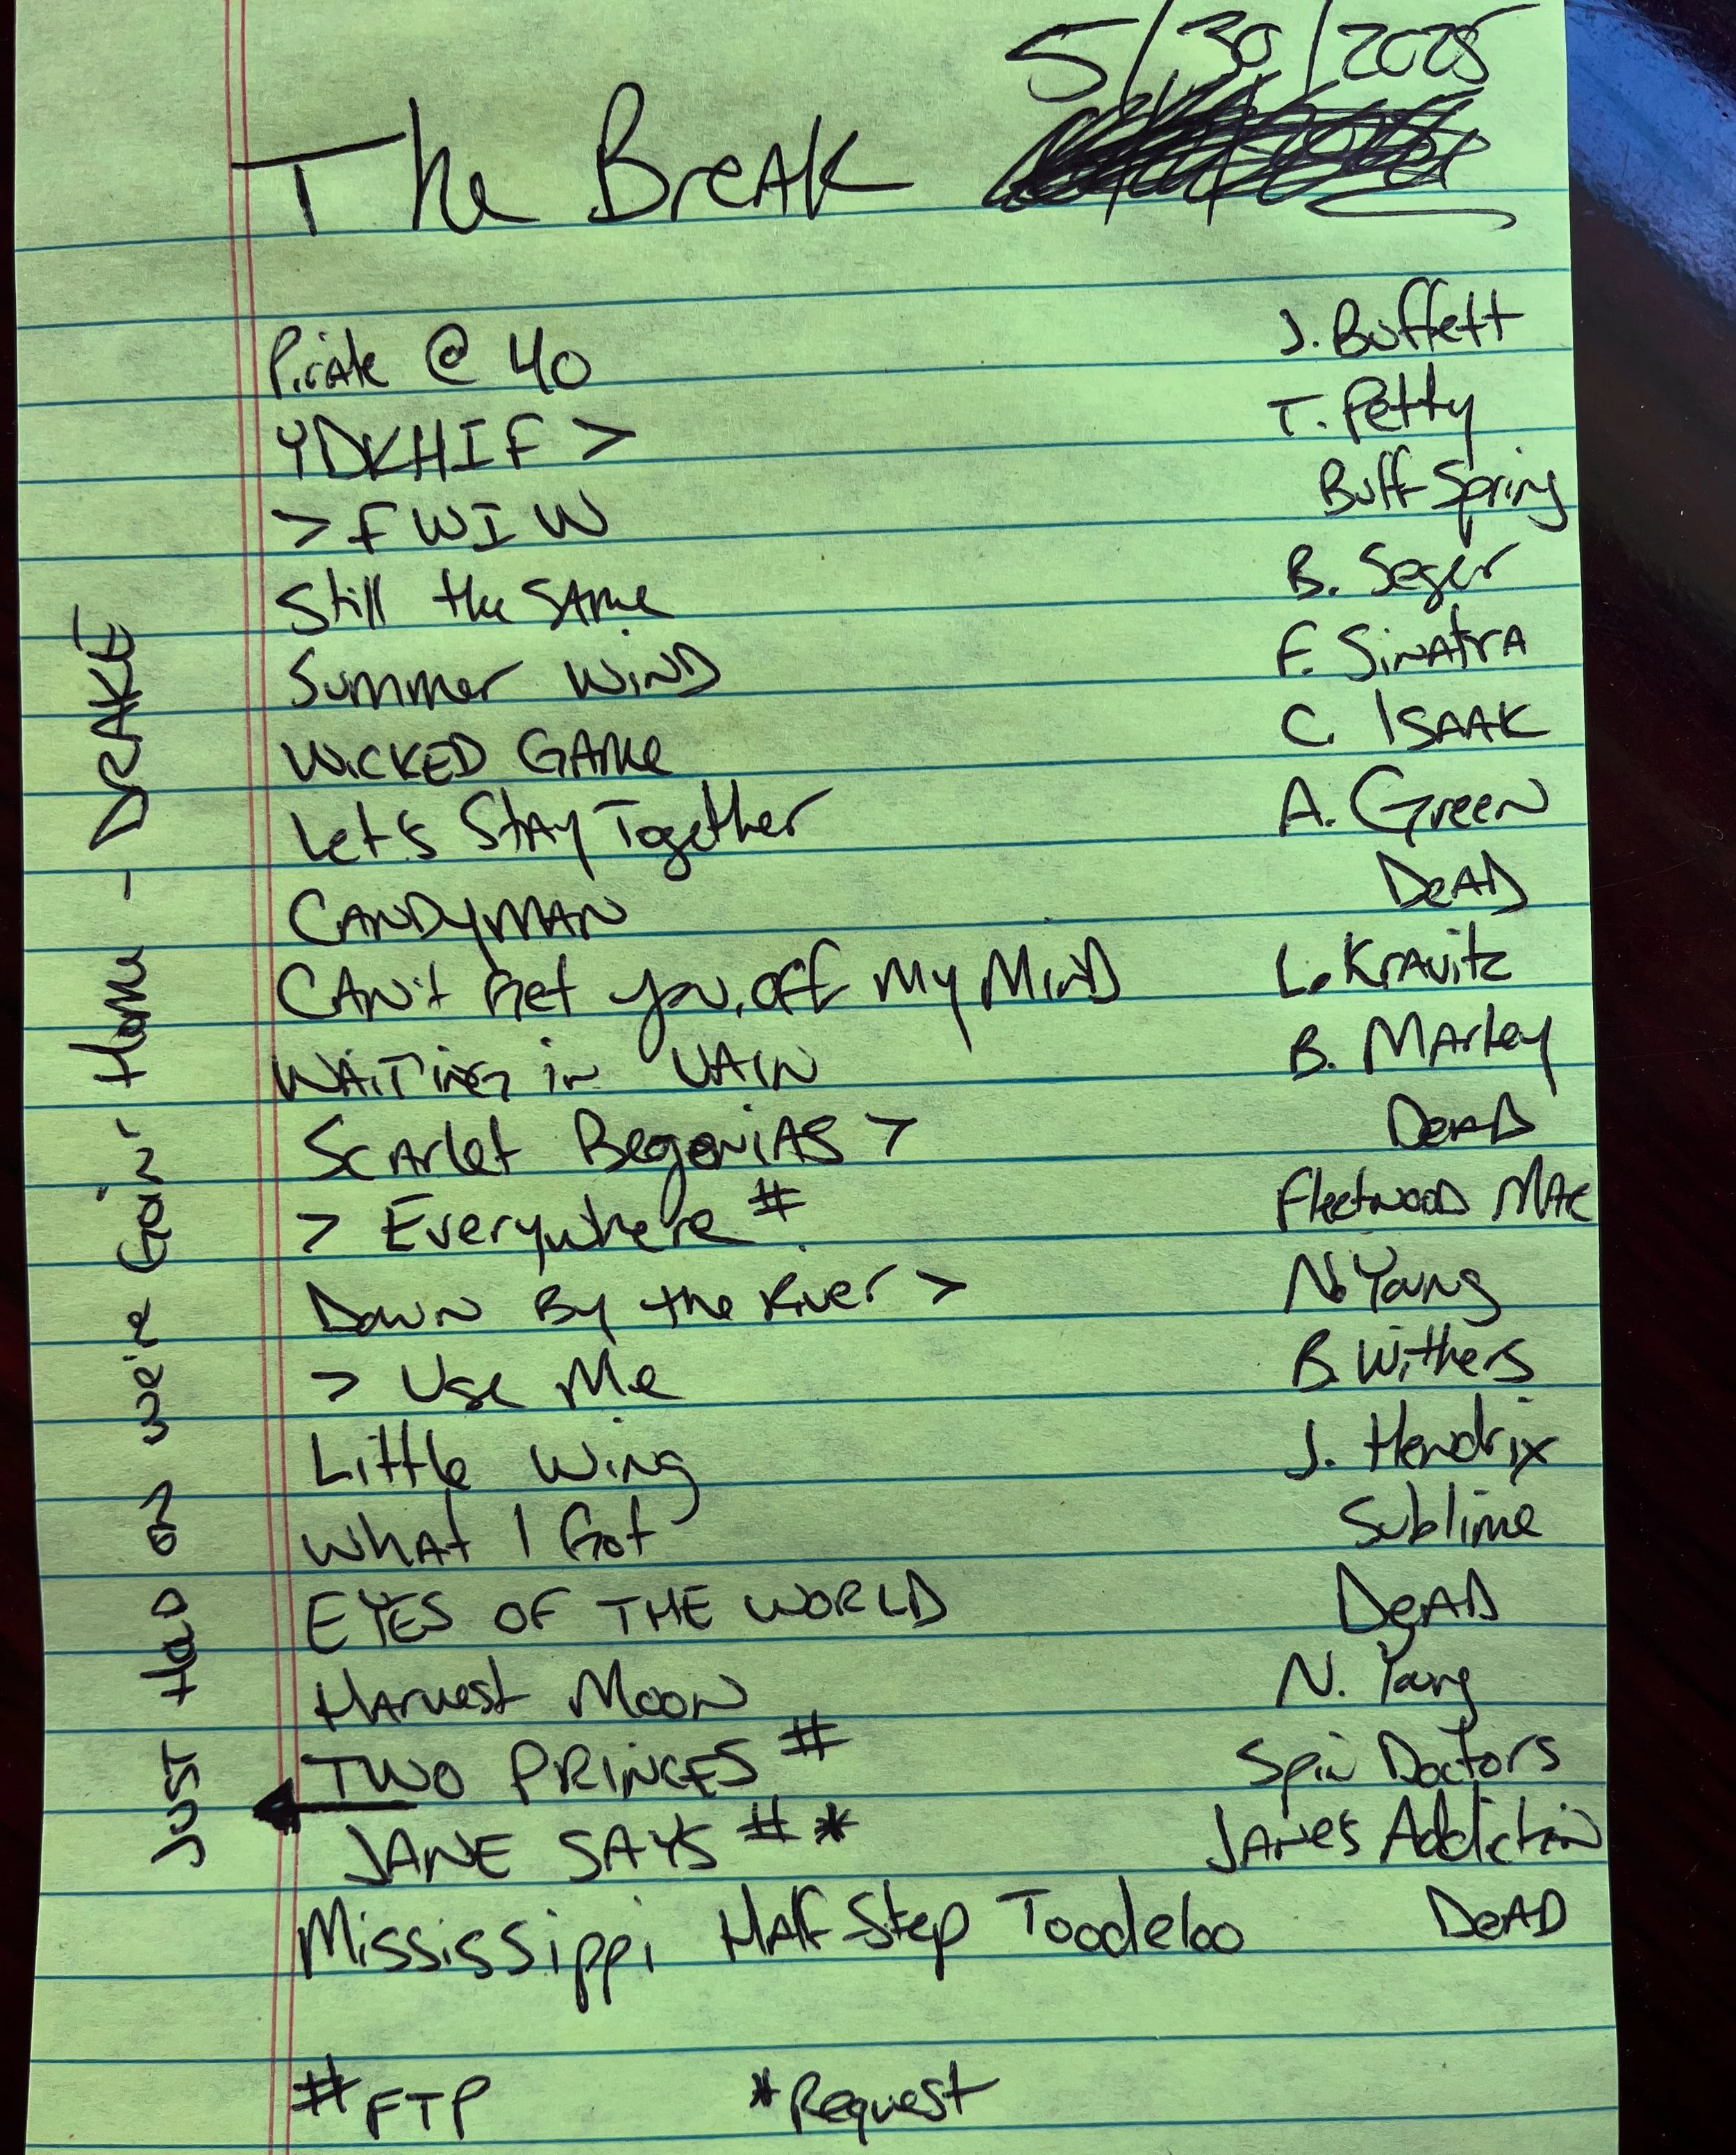 5/30/2025
The Break
Pirate @ 40 J. Buffett
YDKHIF > T. Petty
> FWIW Buff Spring
Still the Same B. Seger
Summer Wind F. Sinatra
Wicked Game C. Isaak
Let's Stay Together A. Green
Candyman Dead
Can't Get you off My Mind L. Kravitz
Waiting in Vain B. Marley
Scarlet Begonias > Dead
> Everywhere # Fleetwood Mac
Down By the River > N. Young
> Use Me B. Withers
Little Wing J. Hendrix
What I Got Sublime
EYES OF THE WORLD Dead
Harvest Moon N. Young
TWO PRINCES # Spin Doctors
JANE SAYS # * Janes Addiction
Mississippi Half-Step Toodeloo Dead
#FTP *Request
Just Hold on we're Goin' Home - DRAKE